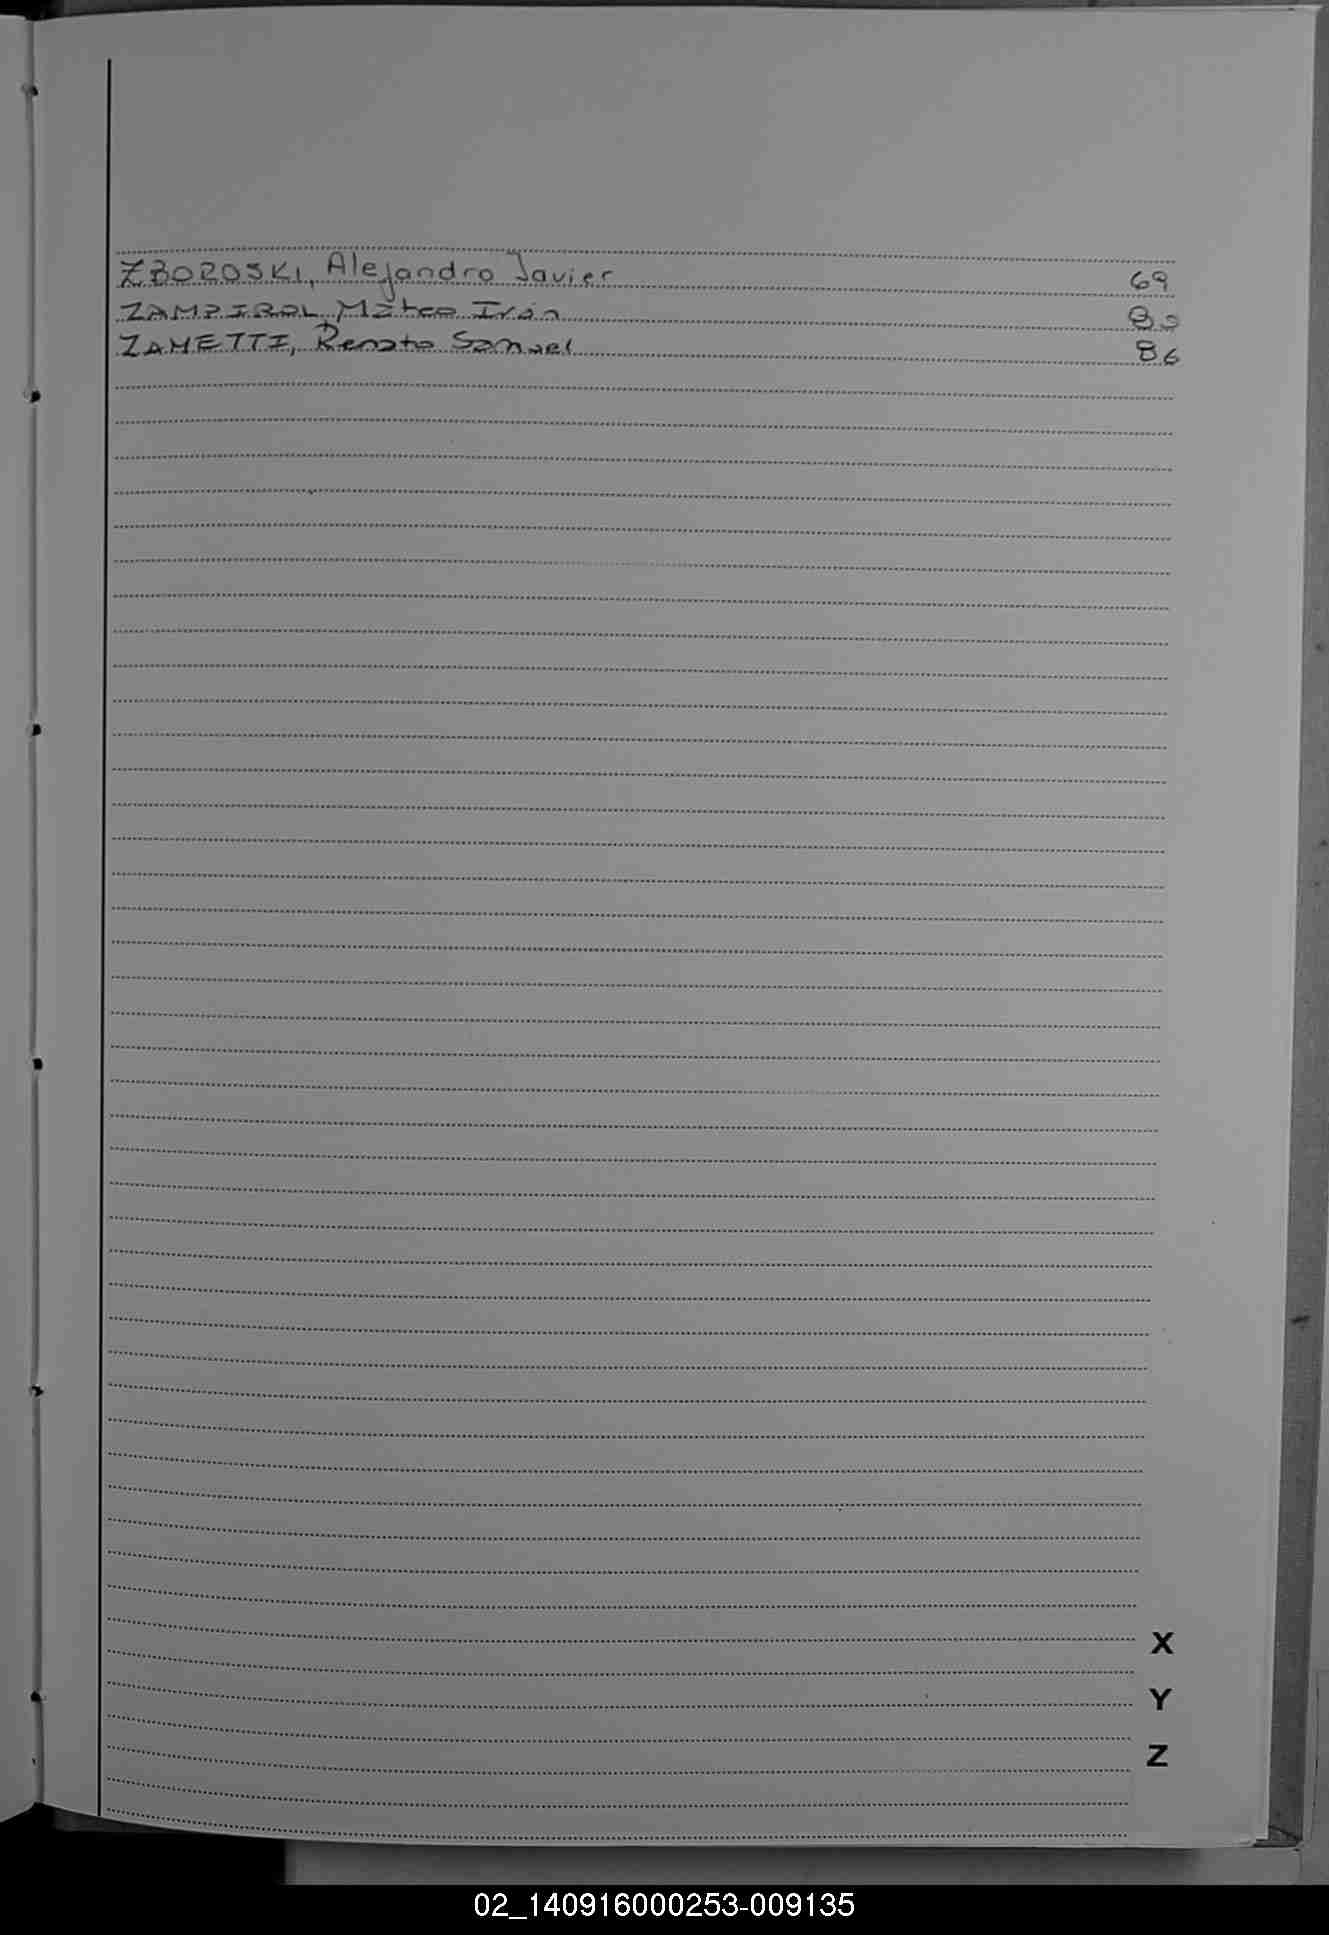 ZBOROSKI, Alejandro Javier 69
ZAMPIROL, Mateo Iván 80
ZAMETTI, Renato Samuel 86
X
Y
Z
02_140916000253-009135